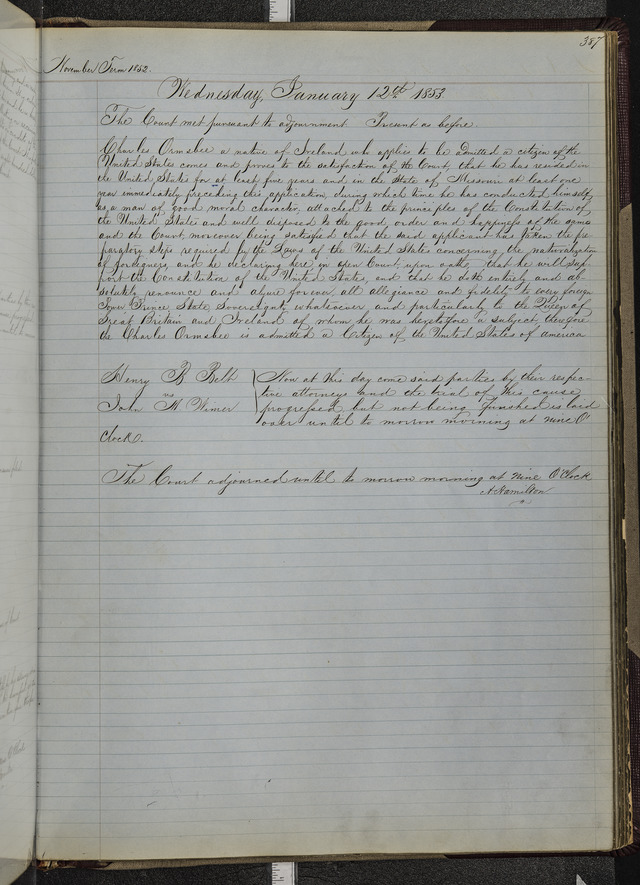 387
November Term 1852.
Wednesday, January 12th 1853.
The Court met pursuant to adjournment Present as before
Charles Ormsbee a native of Ireland who applies to be admitted a citizen of the
United States comes and proves to the satisfaction of the Court, that he has resided in
the United States for at least five years and in the State of Missouri at least one
year immediately preceding this application, during which time he has conducted himself
as a man of good moral character, attached to the principles of the Constitution of
the United States and well disposed to the good order and happiness of the same
and the Court moreover being satisfied that the said applicant has taken the pre
paratory steps required by the Laws of the United States concerning the naturalization
of foreigners, and he declaring here in open Court, upon oath, that he will sup
port the Constitution of the United States, and that he doth entirely and ab
solutely renounce and abjure forever, all allegiance and fidelity to every foreign
Power, Prince, State, Sovereignty whatsoever and particularly to the Queen of
Great Britain and Ireland of whom he was heretofore a subject therefore
the Charles Ormsbee is admitted a Citizen of the United States of america
Henry B Belt
vs
John M Wimer
Now at this day come said parties by their respec-
tive attorneys and the trial of this cause
progressed, but not being finished is laid
over until to morrow morning at nine O'
Clock.
The Court adjourned until to morrow morning at nine O'Clock
A. Hamilton